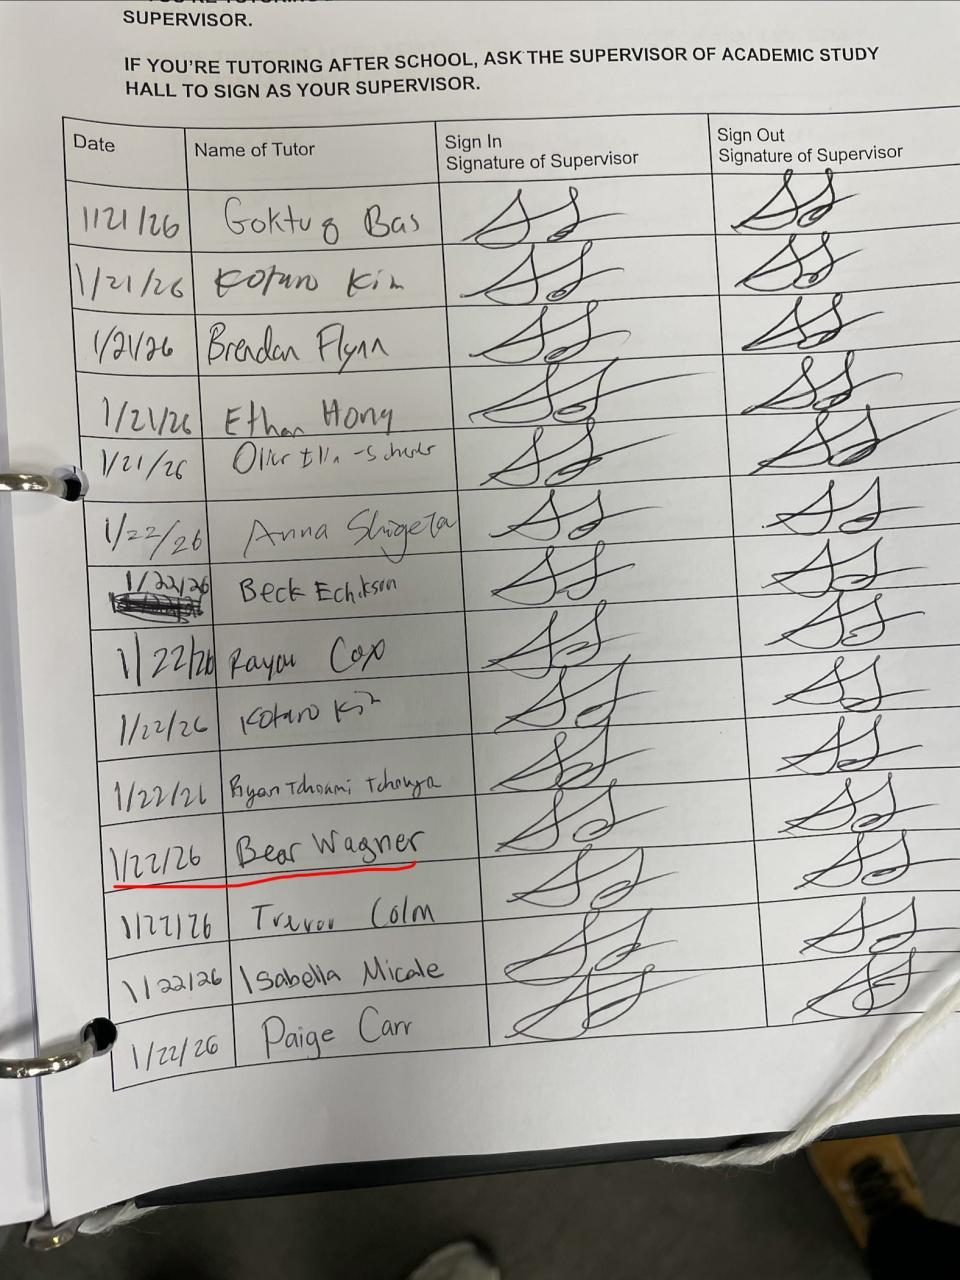 SUPERVISOR.
IF YOU'RE TUTORING AFTER SCHOOL, ASK THE SUPERVISOR OF ACADEMIC STUDY
HALL TO SIGN AS YOUR SUPERVISOR.
Date Name of Tutor Sign In Signature of Supervisor Sign Out Signature of Supervisor
1/21/26 Goktug Bas
1/21/26 Kotaro Kim
1/21/26 Brendan Flynn
1/21/26 Ethan Hong
1/21/26
1/22/26 Anna Shigeta
1/22/26 Beck Echikson
1/22/26 Cox
1/22/26 Kotaro Kim
1/22/26 Ryan Tchoumi Tchouya
1/22/26 Bear Wagner
1/22/26 Trevor Colm
1/22/26 Isabella Micale
1/22/26 Paige Carr